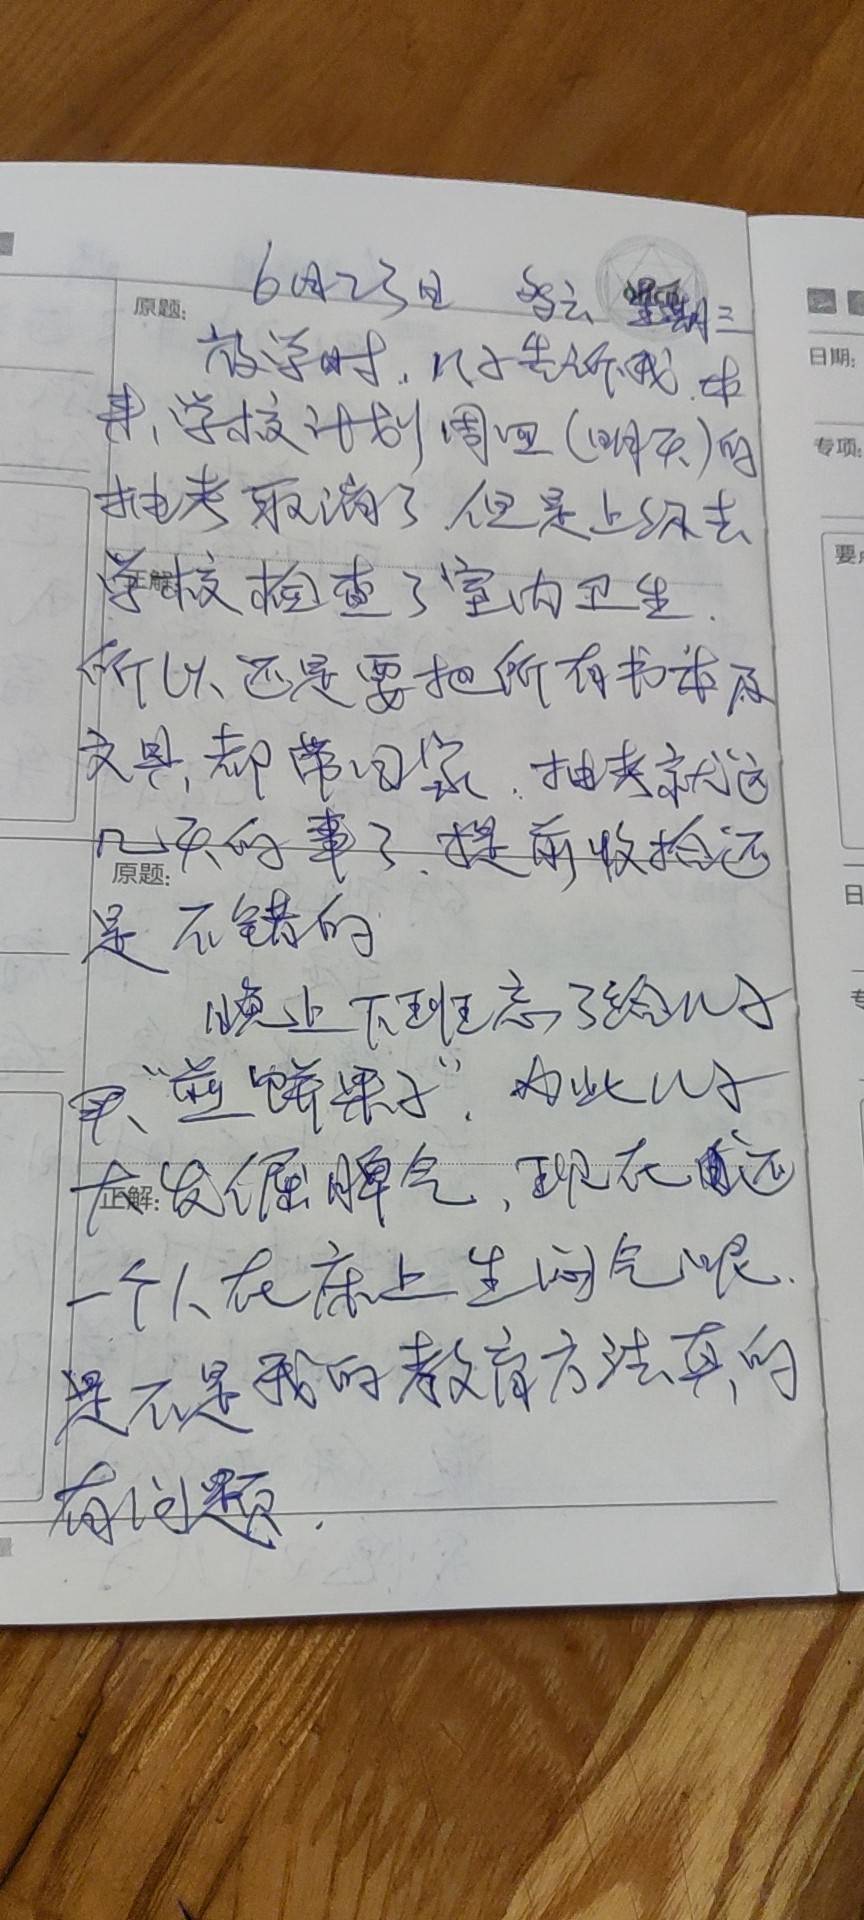 6月23日 多云 星期三
原题:
日期:
放学时,儿子告诉我,本
来,学校计划周四(明天)的
专项:
抽考取消了,但是上级去
学校检查了室内卫生,
正解:
要点
所以,还是要把所有书本及
文具,都带回家,抽考就这
几天的事了,提前收拾还
原题:
是不错的
晚上下班忘了给儿子
买"煎饼果子",为此儿子
大发倔脾气,现在还
正解:
一个人在床上生闷气呢,
是不是我的教育方法真的
有问题.